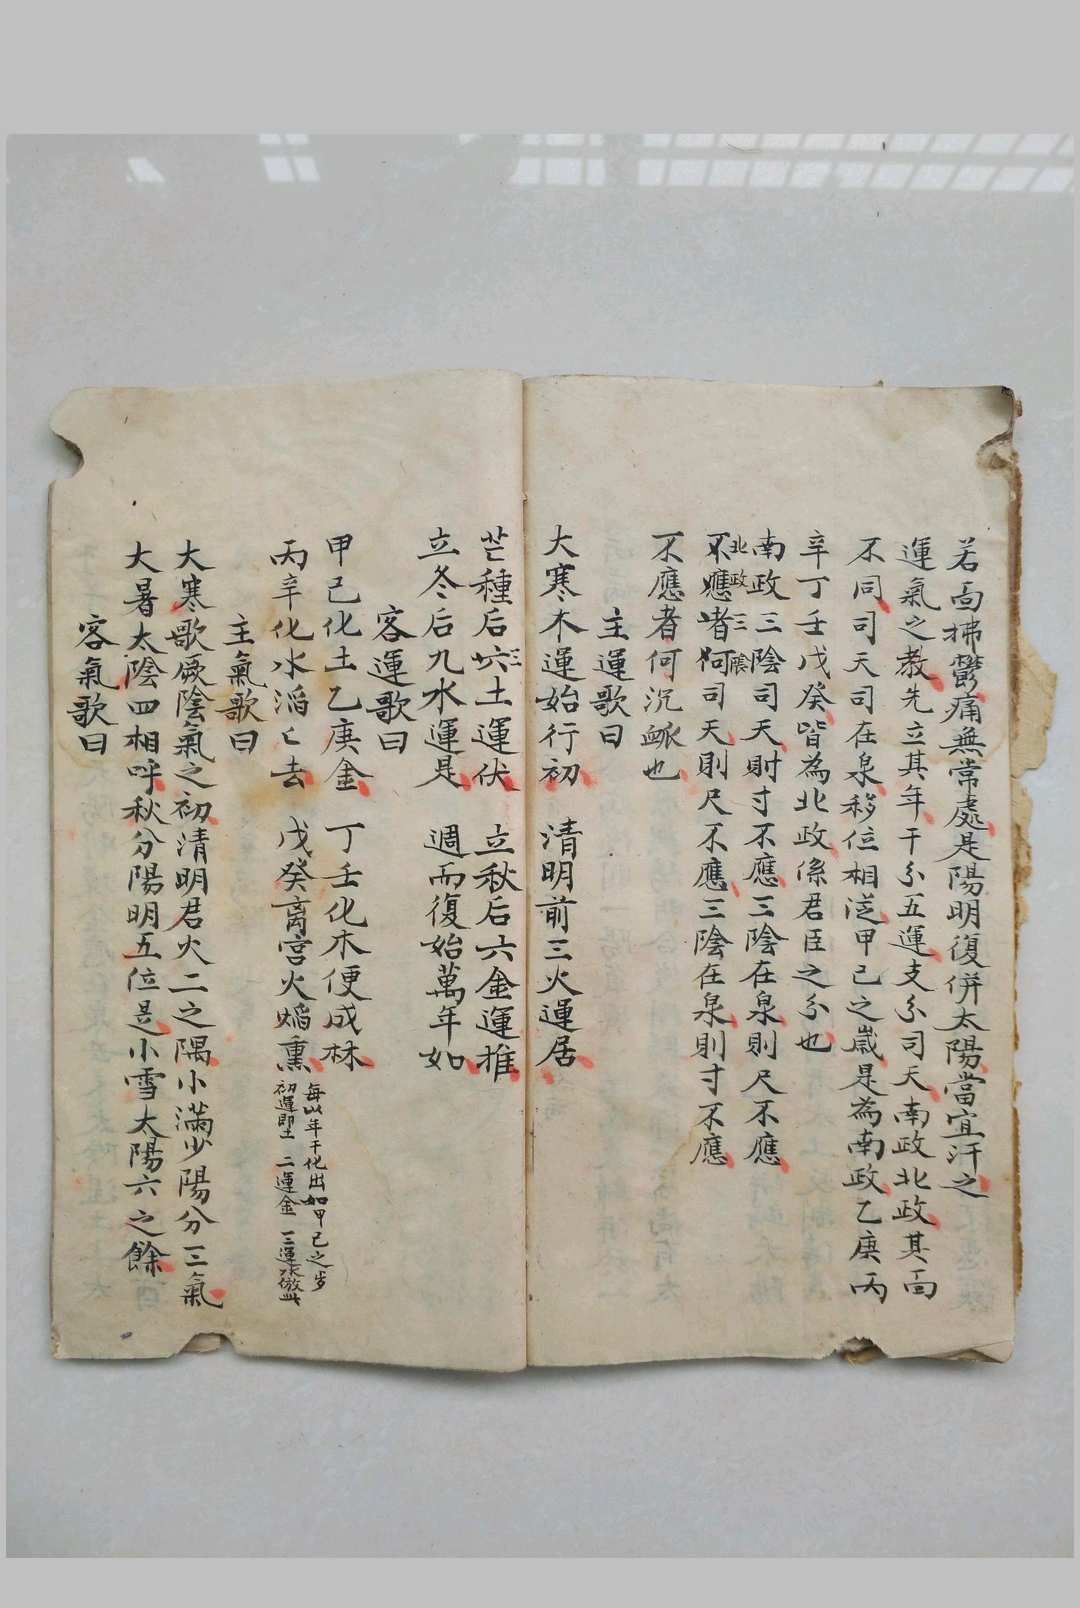 若面拂鬱痛無常處是陽明復併太陽當宜汗之
運氣之教先立其年干分五運支分司天南政北政其面
不同司天司在泉移位相迄甲己之歲是為南政乙庚丙
辛丁壬戊癸皆為北政係君臣之分也
南政三陰司天則寸不應三陰在泉則尺不應
北政三陰
不應者何司天則尺不應三陰在泉則寸不應
不應者何沉脈也
主運歌曰
大寒木運始行初 清明前三火運居
芒種后三土運伏 立秋后六金運推
立冬后九水運是 週而復始萬年如
客運歌曰
甲己化土乙庚金 丁壬化木便成林
丙辛化水滔亡去 戊癸离宫火焰熏
每以年干化出如甲己之岁
初運即土 二運金 三運水倣此
主氣歌曰
大寒歌厥陰氣之初清明君火二之隅小滿少陽分三氣
大暑太陰四相呼秋分陽明五位是小雪太陽六之餘
客氣歌曰